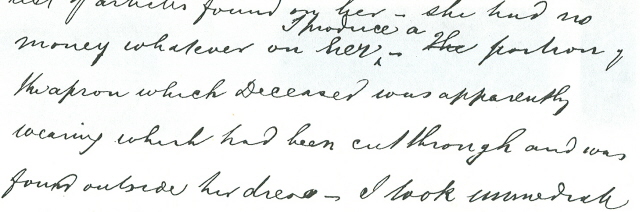 list of articles found on her – she had no
I produce a
money whatever on her, – The portion of
the apron which Deceased was apparently
wearing which had been cut through and was
found outside her dress – I took immediate